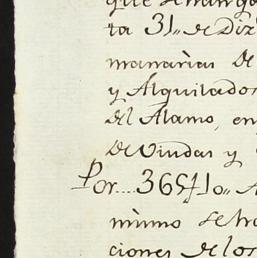 que se
ta 31,, de Diz
manarias de
y Alquilados
del Alamo, en
de Viudas y
Por.... 36541o,,
mismo se ha
ciones de los